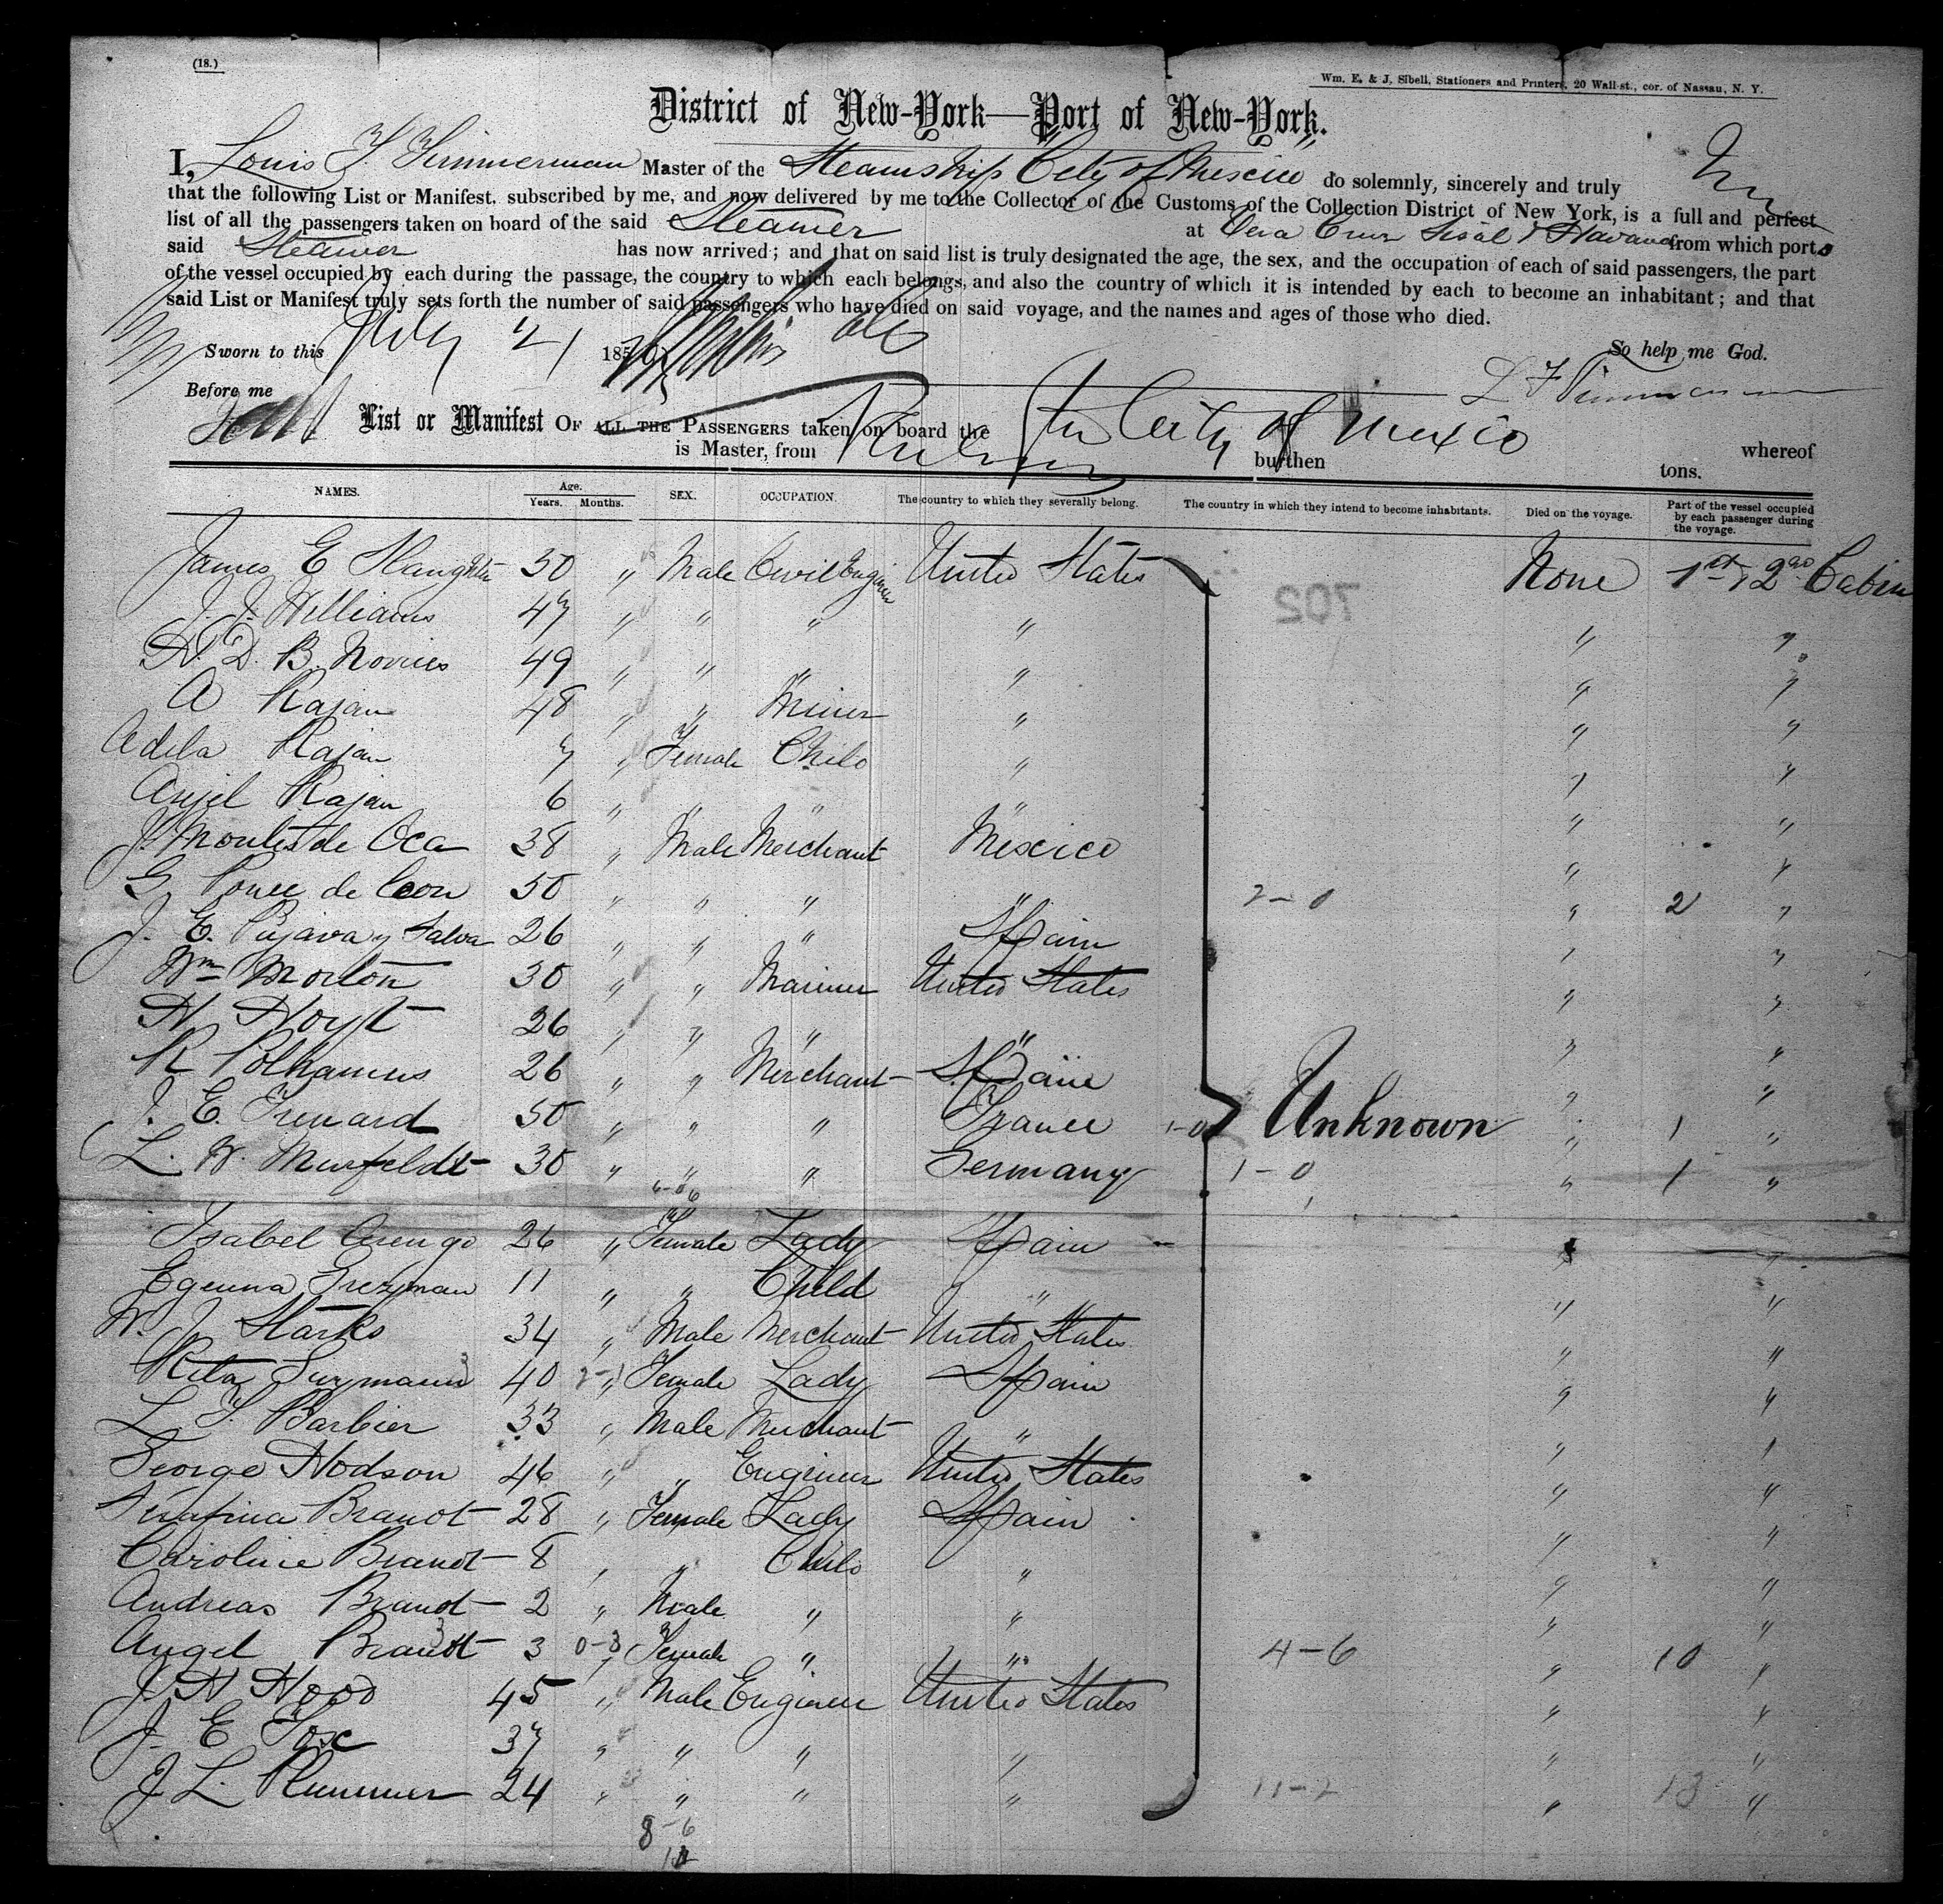 (18.)
Wm. E. & J. Sibell, Stationers and Printers, 20 Wall-st., cor. of Nassau, N. Y.
District of New-York—Port of New-York.
I, Louis F. Timmerman Master of the Steamship City of Mexico do solemnly, sincerely and truly
that the following List or Manifest, subscribed by me, and now delivered by me to the Collector of the Customs of the Collection District of New York, is a full and perfect
list of all the passengers taken on board of the said Steamer at Vera Cruz Sisal & Havana from which ports
said Steamer has now arrived; and that on said list is truly designated the age, the sex, and the occupation of each of said passengers, the part
of the vessel occupied by each during the passage, the country to which each belongs, and also the country of which it is intended by each to become an inhabitant; and that
said List or Manifest truly sets forth the number of said passengers who have died on said voyage, and the names and ages of those who died.
Sworn to this July 21 185
So help me God.
Before me
L F Timmerman
List or Manifest OF ALL THE PASSENGERS taken on board the Str City of Mexico whereof
is Master, from burthen tons.
NAMES. Age. Years. Months. SEX. OCCUPATION. The country to which they severally belong. The country in which they intend to become inhabitants. Died on the voyage. Part of the vessel occupied by each passenger during the voyage.
James E Slaughter 50 " Male Civil Engineer United States None 1st & 2nd Cabin
J. J. Williams 47 " " " " " "
702
N. D. B. Norries 49 " " " " " "
A Rajan 48 " " Miner " " "
Adela Rajan 7 " Female Child " " "
Anjel Rajan 6 " " " " " "
J. Montes de Oca 38 " Male Merchant Mexico " "
G. Ponce de Leon 50 " " " " 2-0 " 2 "
J. E. Pujava y Salva 26 " " " Spain " "
Wm Morton 30 " " Mariner United States " "
H Hoyt 26 " " " " " "
R Polhamus 26 " " Merchant Spain " "
J. E. Frenard 50 " " " France 1-0 Unknown " 1 "
L. W. Murfeldt 30 " " " Germany 1-0 " 1 "
Isabel Arengo 26 " Female Lady Spain " "
Egenna 11 " " Child " " "
W. J. Starks 34 " Male Merchant United States " "
Rita 40 " Female Lady Spain " "
L. F. Barbier 33 " Male Merchant " " "
George Hodson 46 " " Engineer United States " "
Serafina Brandt 28 " Female Lady Spain " "
Caroline Brandt 8 " " Child " " "
Andreas Brandt 2 " Male " " " "
Angel Brandt 3 " Female " " 4-6 " 10 "
J. H Hood 45 " Male Engineer United States " "
J. E Fox 37 " " " " " "
J L. Plummer 24 " " " " 11-2 " 13 "
8-6